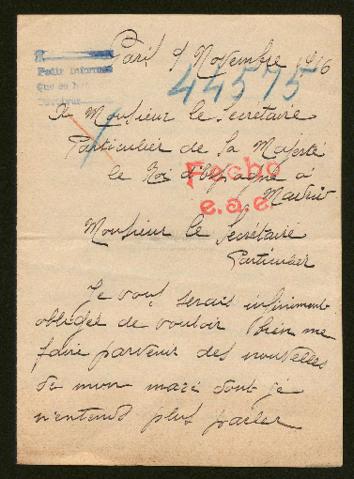 Paris 9 Novembre 1916
Pedir informes
Que se
44575
A Monsieur le Secrétaire
Particulier de Sa Majesté
le Roi d'Espagne à
Madrid
Fecho
e.a.e.
Monsieur le Secrétaire
Particulier
Je vous serais infiniment
obligée de vouloir bien me
faire parvenir des nouvelles
de mon mari dont je
n'entend plus parler